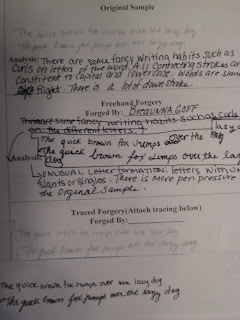 Original Sample
The quick brown fox jumps over the lazy dog
The quick brown fox jumps over the lazy dog
Analysis: There are some fancy writing habits such as
Curls on letters of the word. All Connecting strokes are
Constitent to capital and lowercase. Words are slant
Right. There is a lot of down stroke.
Freehand Forgery
Forged By: Breaunna Goff
There are some fancy writing habits such as curls
on the different letters.
The quick brown fox Jumps over the lazy
The quick brown fox Jumps over the laz
dog
Analysis:
Unusual Letter formation: letters with
slants or singles. There is more pen pressure
the original sample.
Traced Forgery(Attach tracing below)
Forged By:
The quick brown fox jumps over the lazy dog
The quick brown fox jumps over the lazy dog
The quick brown fox jumps over the lazy dog
The quick brown fox jumps over the lazy dog